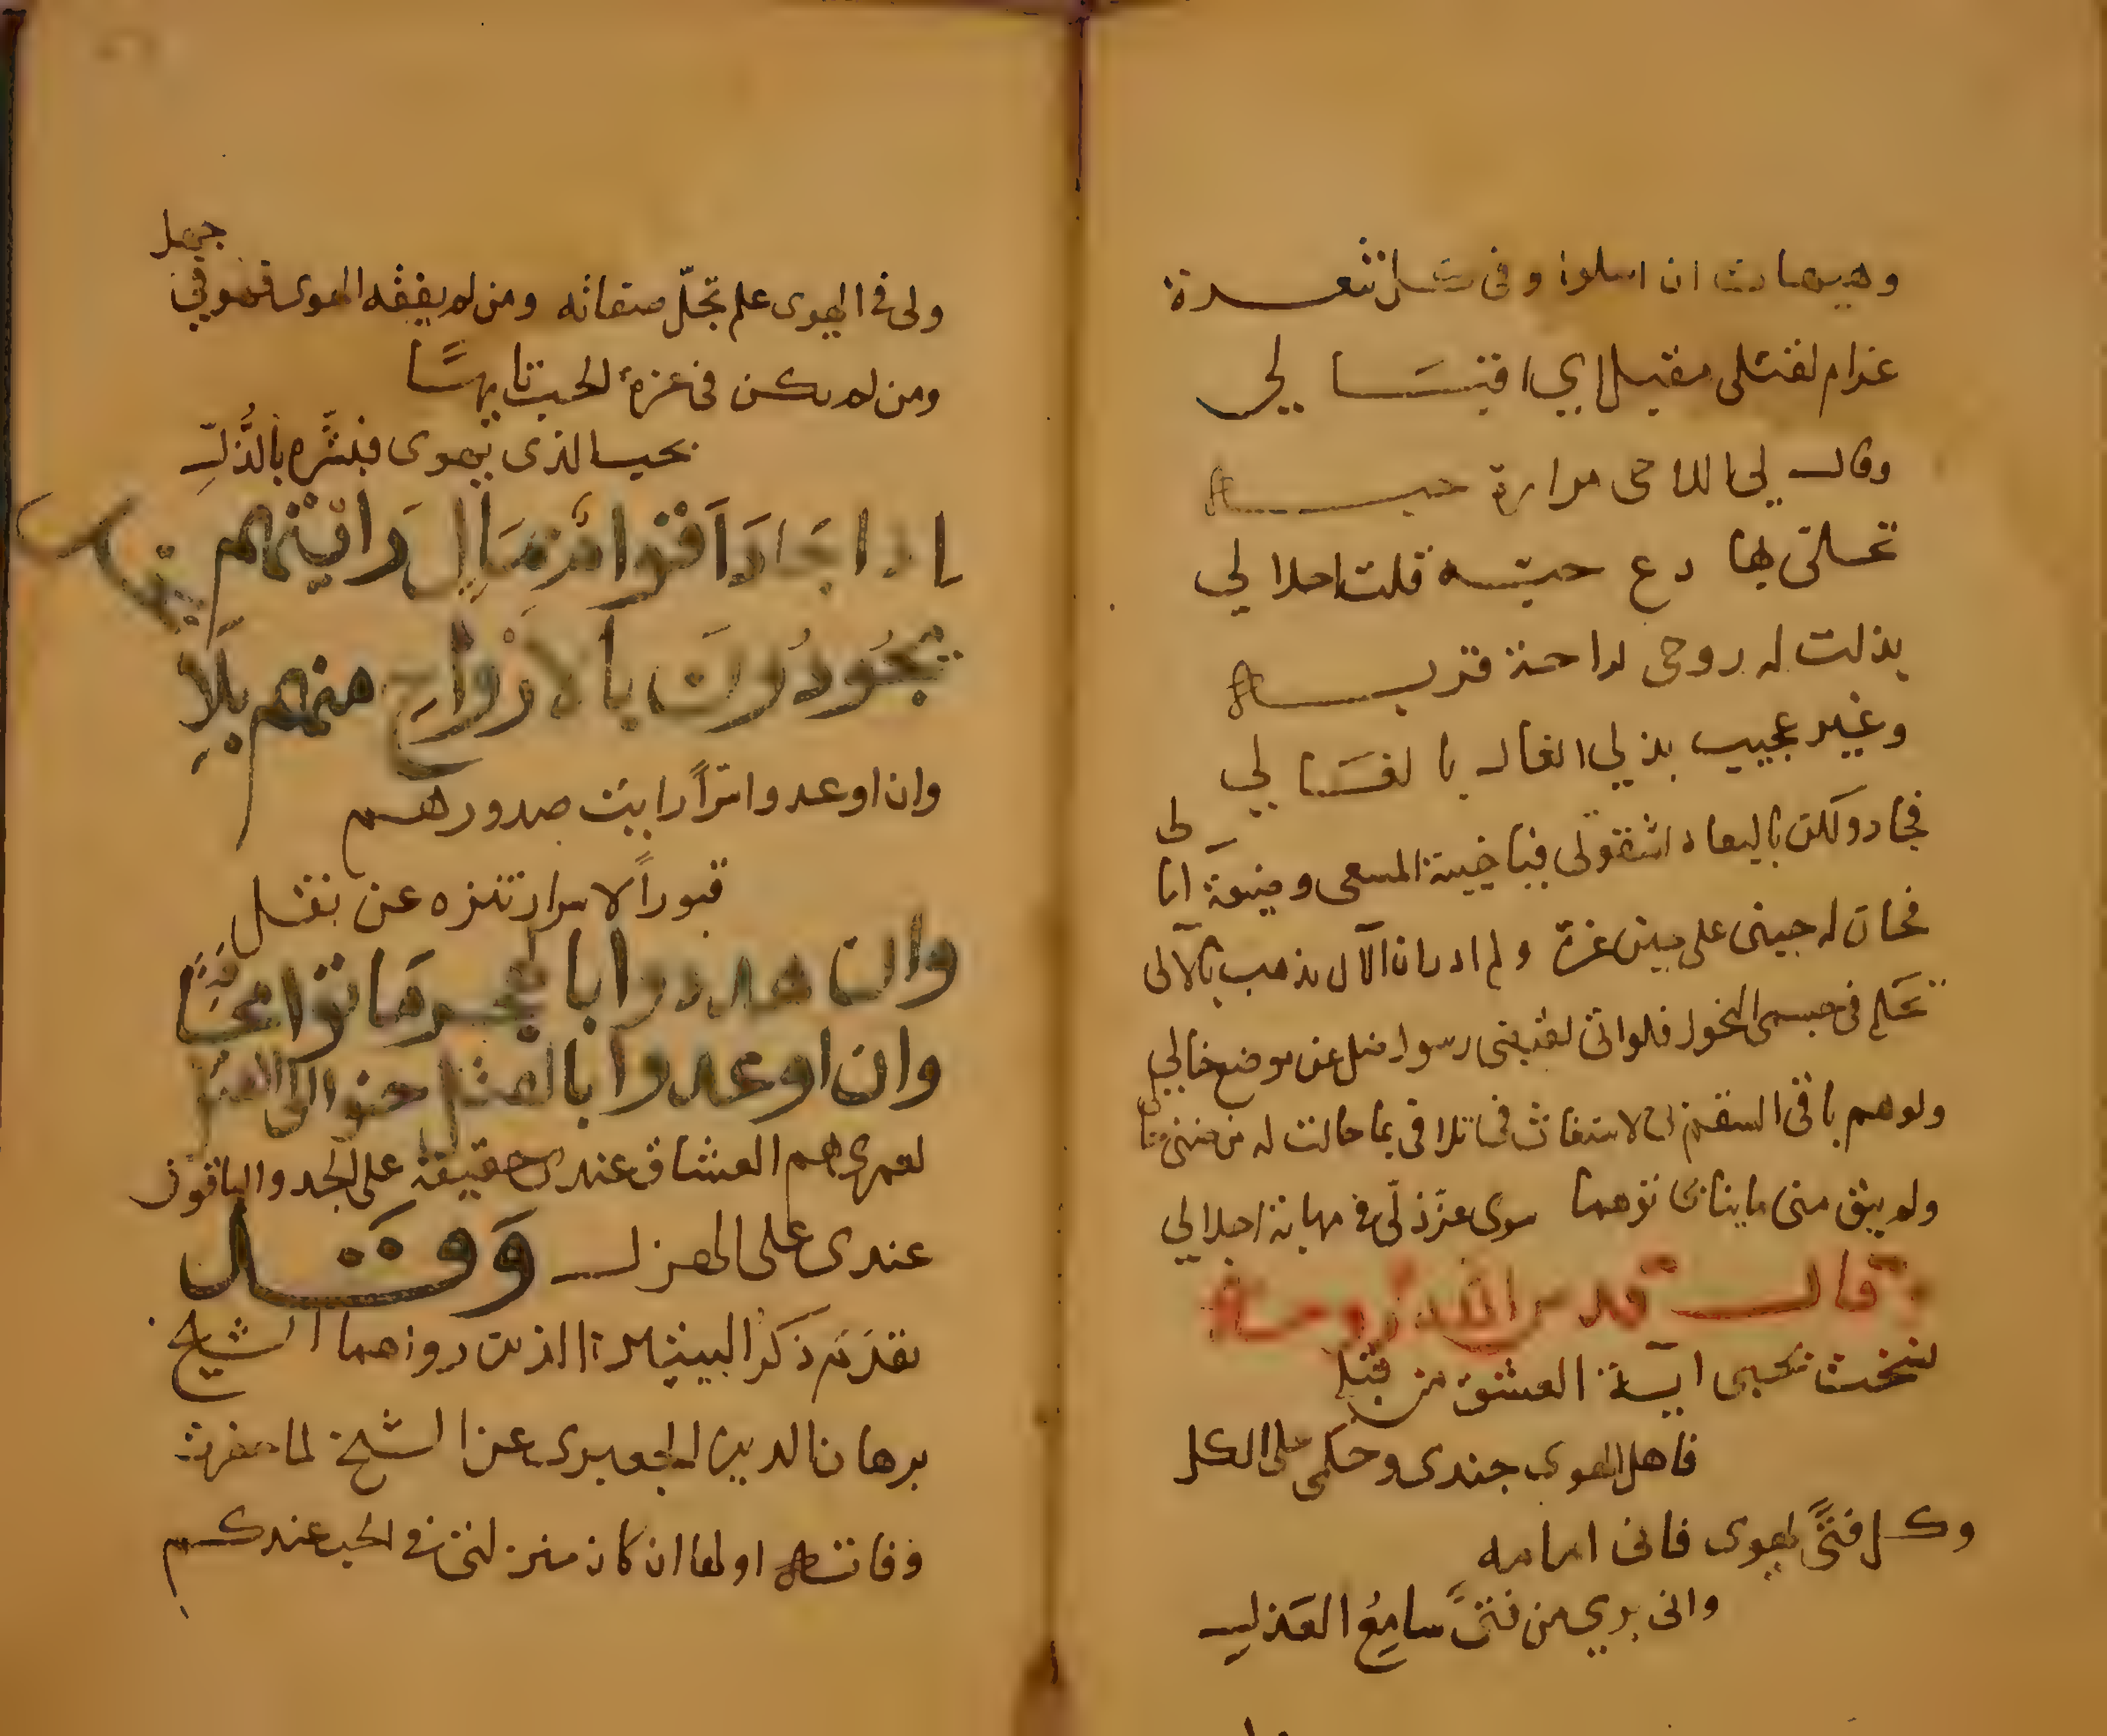 وهيهات ان اسلوا وفي كل شعرة
غرام لقتلي مقبل اي اقبالي
وقال لي اللاحي مرارة حبه
تحلى بها دع حبه قلت احلا لي
بذلت له روحي لراحة قربه
وغير عجيب بذلي الغال بالغالي
فجاد ولكن بالبعاد لشقوتي فيا خيبة المسعى وضيعة اما
لي
فحان له حيني على حين غرة ولم ادر ان الآل يذهب بالآلي
تحكم في جسمي النحول فلو اتى لقبضي رسول ضل عن موضع خالي
ولو هم باقي السقم بي لاستعان في تلافي بما حالت له من ضنى حالي
ولم يبق مني ما يناجى توهما سوى عز ذلي في مهانة اجلالي
وقال قدس الله روحه
نسخت بحبي اية العشق من قبلي
فاهل الهوى جندي وحكمي على الكل
وكل فتًى يهوى فاني امامه
واني بري من فتًى سامع العذل
جهل
ولي في الهوى علم تجلّ صفاته ومن لم يفقه الهوى فهو في
ومن لم يكن في عزة الحب تايهًا
بحب الذي يهوى فبشره بالذل
اذا جاد اقوام بمال رايتهم
يجودون بالارواح منهم بلا بخل
وان اوعدوا سرًا رايت صدورهم
قبورًا لاسرار تنزه عن نقل
وان هددوا بالهجر ماتوا مخافة
وان اوعدوا بالقتل حنوا الى القتل
لعمري هم العشاق عندي حقيقة على الجد والباقون
عندي على الهزل وقد
تقدم ذكر البيتين اللذين رواهما الشيخ
برهان الدين الجعبري عن الشيخ لما حضرت
وفاته اولها ان كان منزلتي في الحب عندكم